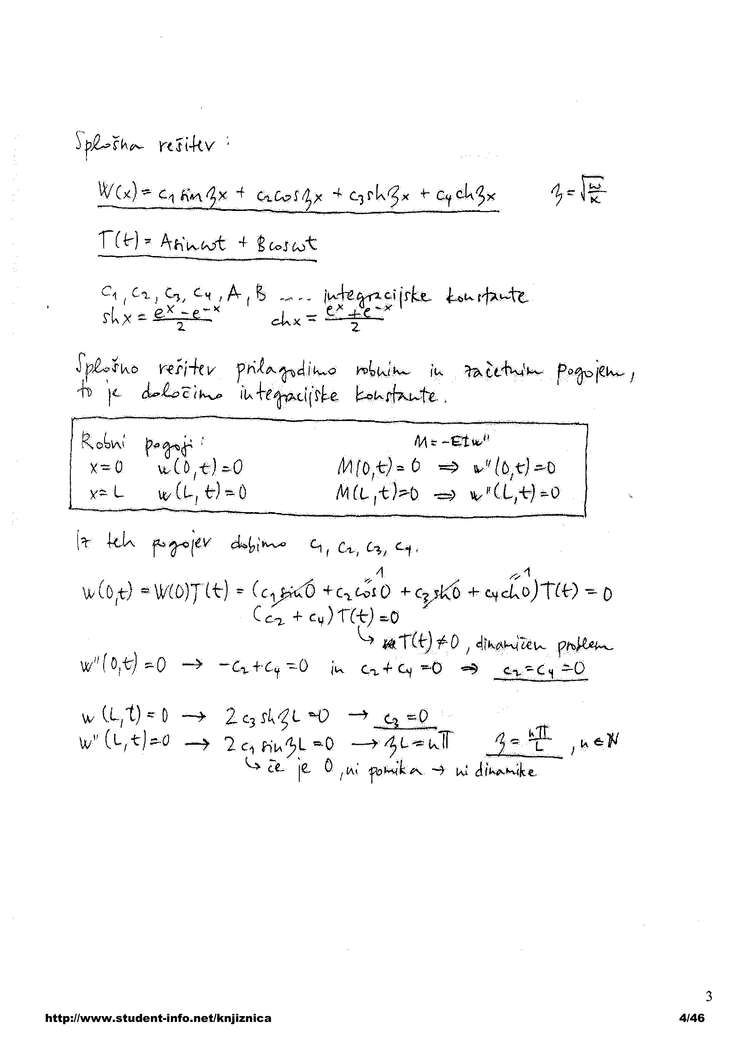 Splošna rešitev :
W(x) = c₁ sin ʒx + c₂ cos ʒx + c₃ sh ʒx + c₄ ch ʒx ʒ = √(ω/κ)
T(t) = A sin ωt + B cos ωt
C₁, C₂, C₃, C₄, A, B .... integracijske konstante
sh x = (eˣ - e⁻ˣ)/2 ch x = (eˣ + e⁻ˣ)/2
Splošno rešitev prilagodimo robnim in začetnim pogojem,
to je določimo integracijske konstante.
Robni pogoji: M = -EIw''
x = 0 w(0,t) = 0 M(0,t) = 0 ⇒ w''(0,t) = 0
x = L w(L,t) = 0 M(L,t) = 0 ⇒ w''(L,t) = 0
Iz teh pogojev dobimo c₁, c₂, c₃, c₄.
w(0,t) = W(0)T(t) = (c₁ sin 0 + c₂ cos 0 + c₃ sh 0 + c₄ ch 0) T(t) = 0
(c₂ + c₄) T(t) = 0
↳ T(t) ≠ 0, dinamičen problem
w''(0,t) = 0 → -c₂ + c₄ = 0 in c₂ + c₄ = 0 ⇒ c₂ = c₄ = 0
w(L,t) = 0 → 2 c₃ sh ʒL = 0 → c₃ = 0
w''(L,t) = 0 → 2 c₁ sin ʒL = 0 → ʒL = nπ ʒ = nπ/L, n ∈ N
↳ če je 0, ni pomika → ni dinamike
3
http://www.student-info.net/knjiznica 4/46